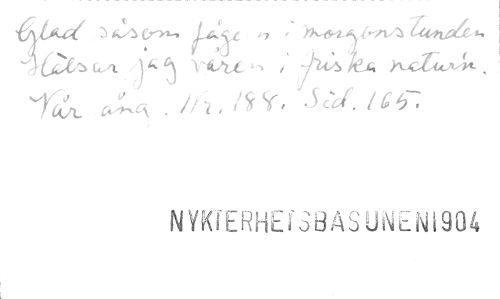 Glad såsom fågeln i morgonstunden
Hälsar jag våren i friska naturn.
Vår ång. Nr. 188. Sid. 165.
NYKTERHETSBASUNEN 1904